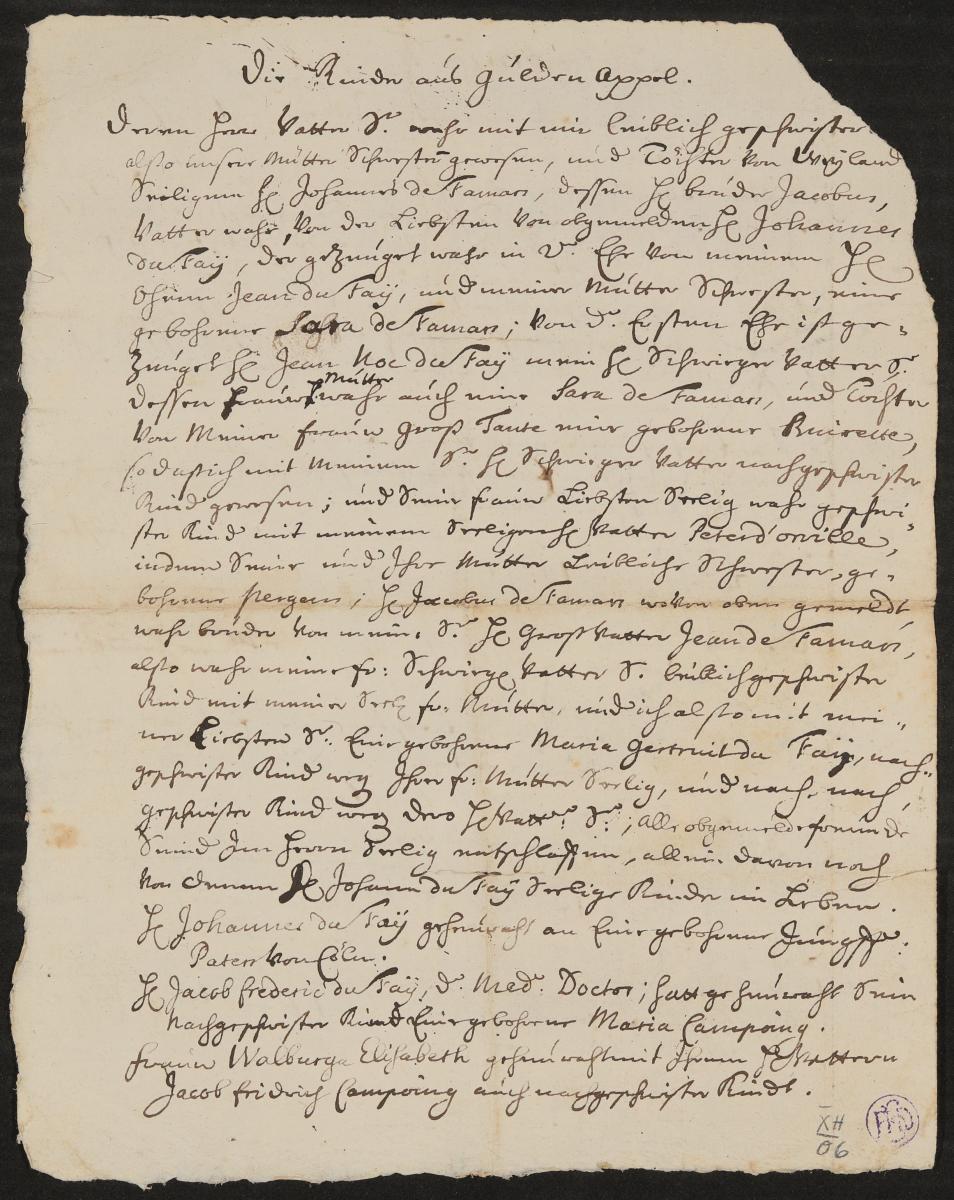 Die Kinder aus gülden Appel.
Deren Herr Vatter S. wahr mit mir leiblich geschwister
also unsere Mütter Schwestern gewesen, und Töchter von Weyland
Seeligem H. Johannes de Famars, dessen H. bruder Jacobus,
Vatter wahr, von der Liebsten von obgemeldem H. Johannes
du Faÿ, der gezeuget wahr in 2. Ehe von meinem H.
Ohmm Jean du Faÿ, und meiner Mütter Schwester, eine
gebohrne Sara de Famars; von d. Ersten Ehe ist ge-
zeuget H. Jean Noe du Faÿ mein H. Schwieger Vatter S.
dessen frauw Mütter wahr auch eine Sara de Famars, und Tochter
von Meiner frauw groß Tante eine gebohrne Ruisette,
so daß ich mit Meinem S. H. Schwieger Vatter nachgeschwister
Kind gewesen; und Seine frauw Liebsten Seelig wahr geschwi-
ster Kind mit meinem Seeligen H. Vatter Peter d'orville,
indem Seine und Ihre Mütter Leibliche Schwester, ge-
bohrne Pergens; H. Jacobus de Famars wovon oben gemeldt
wahr bruder von mein. S. H. Groß Vatter Jean de Famars,
also wahr meine fr: Schwieg. Vatter S. leiblich geschwister
Kind mit meiner Seel. fr: Mütter, und ich also mit mei-
ner Liebsten S. Eine gebohrne Maria Gertruit du Faÿ, nach-
geschwister Kind weg. Ihrer fr: Mütter Seelig, und nach, nach,
geschwister Kind weg. dero H. Vatt. S.; alle obgemelde freunde
Seind Im Herrn Seelig entschlaffen, allein davon noch
von denen H. Johann du Faÿ Seelige Kinder im Leben.
H. Johannes du Faÿ geheuraht an Eine gebohrne Jungff:
Paters von Cöln.
H. Jacob frederic du Faÿ, d. Med. Doctor; hatt geheuraht Sein
Nachgeschwister Kind Eine gebohrne Maria Campoing.
frauw Walburga Elisabeth geheuraht mit Ihrem H. Vattern
Jacob fridrich Campoing auch nachgeschwister Kindt.
XII
06